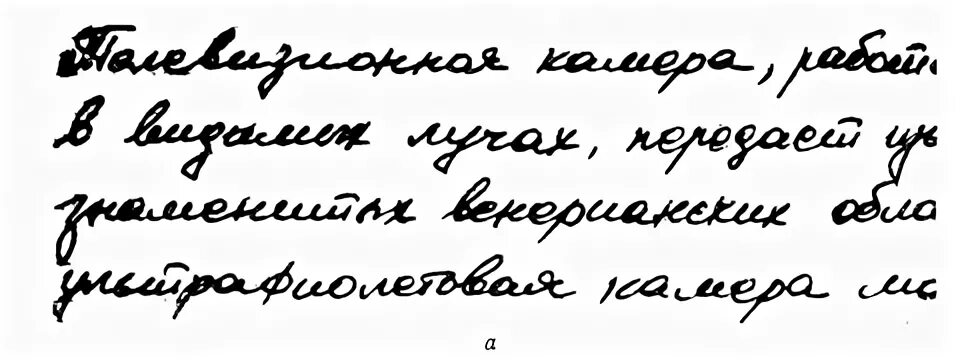 Телевизионная камера, работ
в видимых лучах, передаст цв
знаменитых венерианских обла
ультрафиолетовая камера мо
а